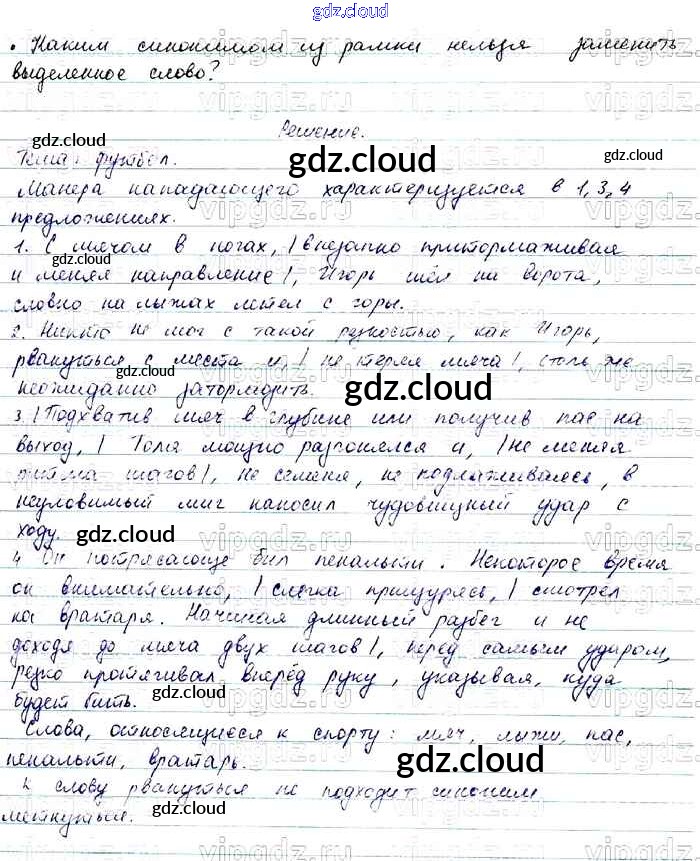 gdz.cloud
• Каким синонимом из рамки нельзя заменить
выделенное слово?
Решение.
Тема: футбол.
Манера нападающего характеризуется в 1, 3, 4
предложениях.
1. С мячом в ногах, | внезапно притормаживая
и меняя направление |, Игорь шёл на ворота,
словно на лыжах летел с горы.
2. Никто не мог с такой резкостью, как Игорь,
рвануться с места и, | не теряя мяча |, столь же
неожиданно затормозить.
3. | Подхватив мяч в глубине или получив пас на
выход, | Толя мощно разгонялся и, | не меняя
ритма шагов |, не семеня, не подлаживаясь, в
неуловимый миг наносил чудовищный удар с
ходу.
4. Он потрясающе бил пенальти. Некоторое время
он внимательно, | слегка прищурясь, | смотрел
на вратаря. Начиная длинный разбег и не
доходя до мяча двух шагов |, перед самым ударом,
резко протягивал вперёд руку, указывая, куда
будет бить.
Слова, относящиеся к спорту: мяч, лыжи, пас,
пенальти, вратарь.
К слову рвануться не подходит синоним
метнуться.